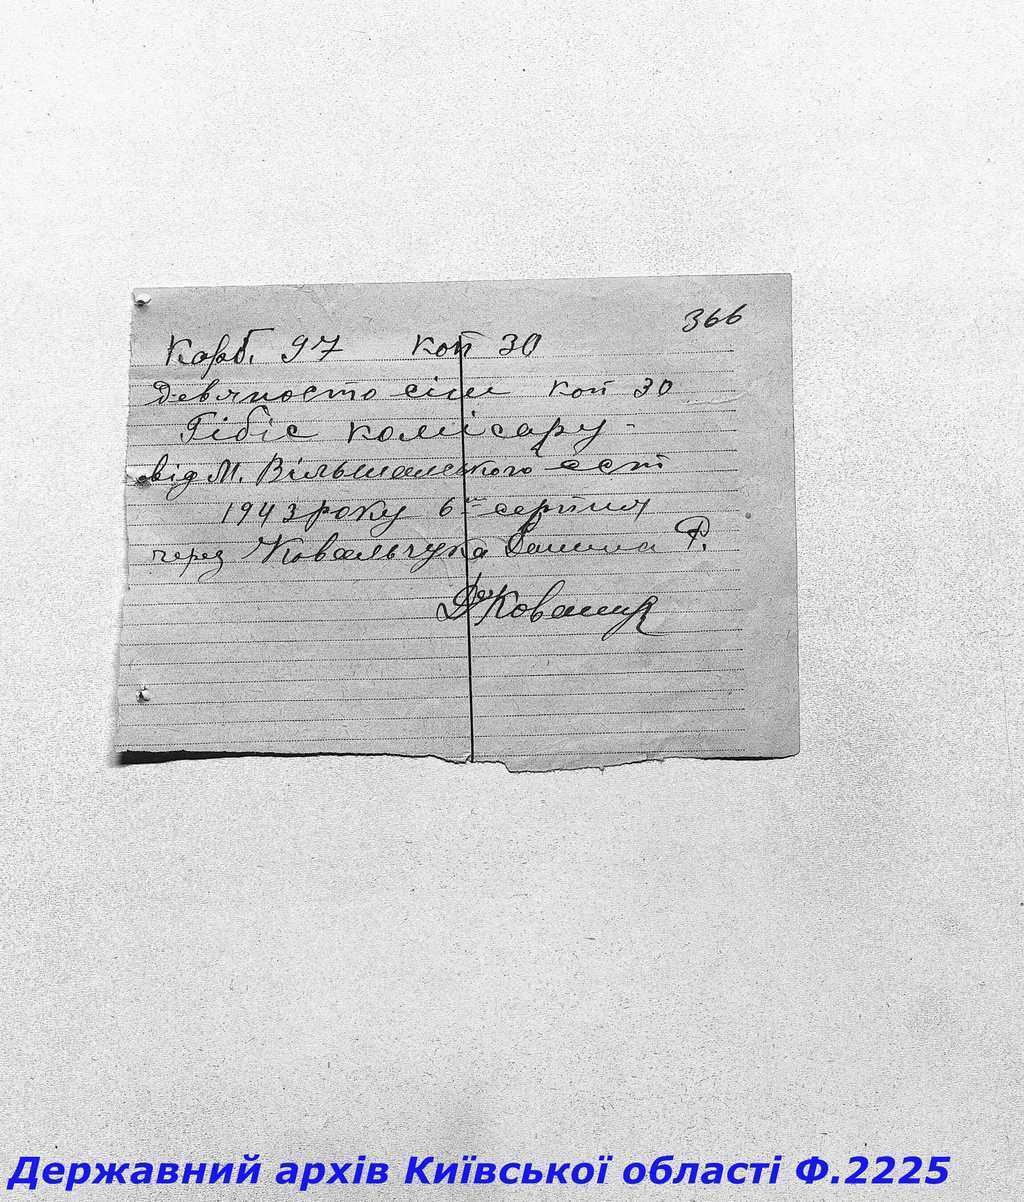 366
Карб. 97 коп 30
Девяносто сім коп 30
Гібіс комісару -
від М. Вільшанського
1943 року 6 серпня
через Ковальчука Р.
Державний архів Київської області Ф.2225